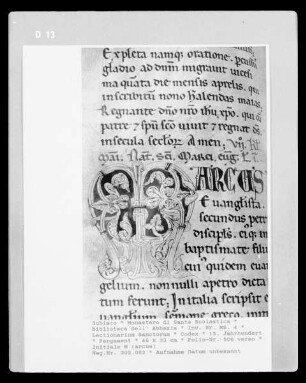 D 13
Expleta namq; oratione. percussus
gladio ad dñm migravit vicesi
ma quarta die mensis aprelis. qui
inscribitur nono kalendas maias.
Regnante dño nr̃o ihu xpo. qui cũ
patre & spũ scõ vivit & regnat dš
in secula seclor̃. Amen.
MARCUS
Evanglista.
secundus petri
discipls. ei
baptismate filiu
cui quidem evan
gelium. non nulli dictan
tum ferunt; In italia scripsit e
vanglium sermone greco.
Subiaco * Monastero di Santa Scolastica *
Biblioteca dell' Abbazia * Inv. Nr. MS. 4 *
Lectionarium Sanctorum * Codex * 12. Jahrhundert
* Pergament * 48 x 32 cm * Folio-Nr. 80R verso *
Initiale M (arcus)
Neg.Nr. 303.082 * Aufnahme Datum unbekannt